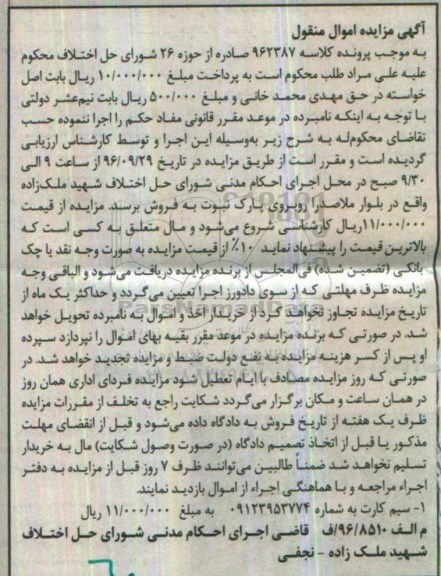 آگهی مزایده اموال منقول
به موجب پرونده کلاسه ۹۶۲۳۸۷ صادره از حوزه ۲۶ شورای حل اختلاف محکوم
علیه علی مراد طلب محکوم است به پرداخت مبلغ ۱۰/۰۰۰/۰۰۰ ریال بابت اصل
خواسته در حق مهدی محمد خانی و مبلغ ۵۰۰/۰۰۰ ریال بابت نیم‌عشر دولتی
با توجه به اینکه نامبرده در موعد مقرر قانونی مفاد حکم را اجرا ننموده حسب
تقاضای محکوم‌له به شرح زیر به‌وسیله این اجرا و توسط کارشناس ارزیابی
گردیده است و مقرر است از طریق مزایده در تاریخ ۹۶/۰۹/۲۹ از ساعت ۹ الی
۹/۳۰ صبح در محل اجرای احکام مدنی شورای حل اختلاف شهید ملک‌زاده
واقع در بلوار ملاصدرا روبروی پارک نبوت به فروش برسد. مزایده از قیمت
۱۱/۰۰۰/۰۰۰ریال کارشناسی شروع می‌شود و مال متعلق به کسی است که
بالاترین قیمت را پیشنهاد نماید ۱۰٪ از قیمت مزایده به صورت وجه نقد یا چک
بانکی (تضمین شده) فی‌المجلس از برنده مزایده دریافت می‌شود و الباقی وجه
مزایده ظرف مهلتی که از سوی دادورز اجرا تعیین می‌گردد و حداکثر یک ماه از
تاریخ مزایده تجاوز نخواهد کرد از خریدار اخذ و اموال به نامبرده تحویل خواهد
شد. در صورتی که برنده مزایده در موعد مقرر بقیه بهای اموال را نپردازد سپرده
او پس از کسر هزینه مزایده به نفع دولت ضبط و مزایده تجدید خواهد شد. در
صورتی که روز مزایده مصادف با ایام تعطیل شود مزایده فردای اداری همان روز
در همان ساعت و مکان برگزار می‌گردد شکایت راجع به تخلف از مقررات مزایده
ظرف یک هفته از تاریخ فروش به دادگاه داده می‌شود و قبل از انقضای مهلت
مذکور یا قبل از اتخاذ تصمیم دادگاه (در صورت وصول شکایت) مال به خریدار
تسلیم نخواهد شد ضمناً طالبین می‌توانند ظرف ۷ روز قبل از مزایده به دفتر
اجراء مراجعه و با هماهنگی اجراء از اموال بازدید نمایند.
۱- سیم کارت به شماره ۰۹۱۲۳۹۵۳۷۷۴ به مبلغ ۱۱/۰۰۰/۰۰۰ ریال
م الف ۹۶/۸۵۱۰/ف قاضی اجرای احکام مدنی شورای حل اختلاف
شهید ملک زاده - نجفی